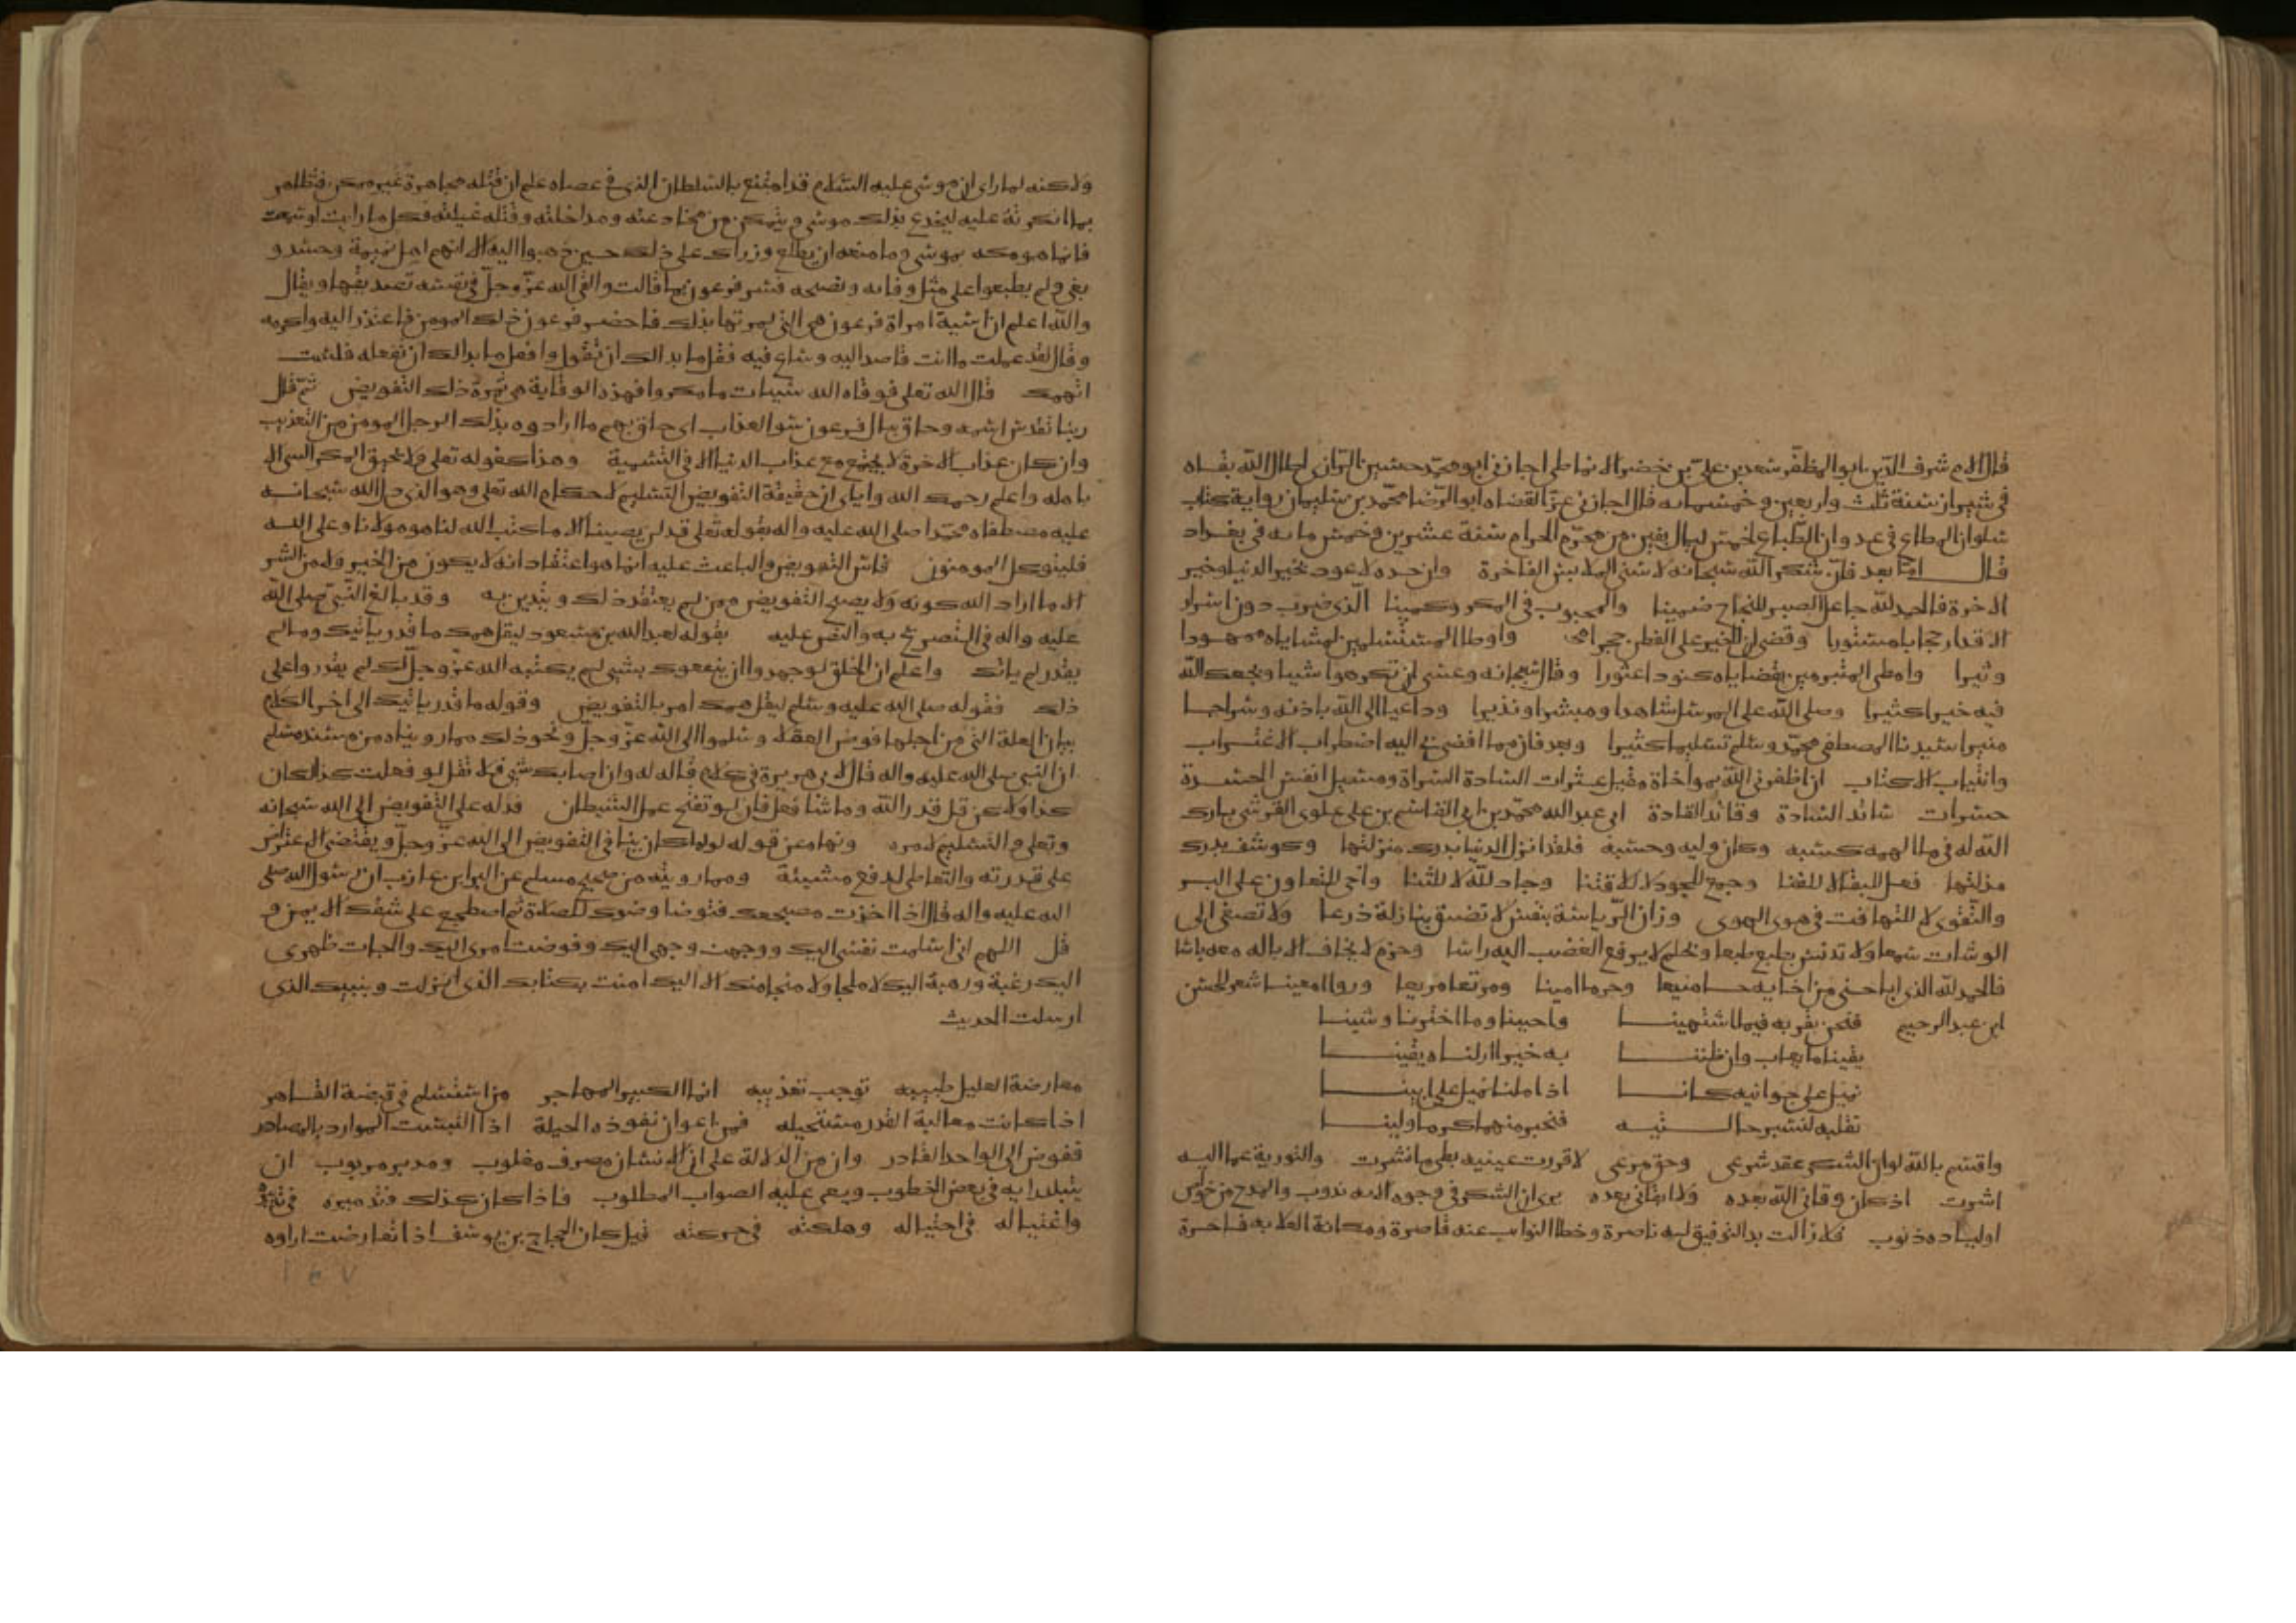 قال الامام شرف الدين ابو المظفر سعد بن علي بن خضر الانماطي اجازني ابو محمد حسين الراني اطال الله بقاه
في شيراز سنة ثلث واربعين وخمسمائه قال اجازني عز القضاه ابو الرضا محمد بن سليمان رواية كتاب
سلوان المطاع في عدوان الطباع لخمس ليال بقين من محرم الحرام سنة عشرين وخمس مائه في بغداد
قال اما بعد فان شكر الله سبحانه لاسنى الملابس الفاخرة وان حمده لاعود بخير الدنيا وخير
الاخرة فالحمد لله جاعل الصبر للنجاح ضمينا والمحبوب في المكروه كمينا الذي ضرب دون اسرار
الاقدار حجابا مستورا وقضى ان للخير على الفطن حجرا واوطا المستسلمين لمشاياه مهودا
وثيرا وامطى المتبرمين بقضاياه كنودا عثورا وقال سبحانه وعسى ان تكرهوا شيا ويجعل الله
فيه خيرا كثيرا وصلى الله على المرسل شاهدا ومبشرا ونذيرا وداعيا الى الله باذنه وسراجا
منيرا سيدنا المصطفى محمد وسلم تسليما كثيرا وبعد فان مما افضى بي اليه اضطراب الاغتراب
وانتياب الاكتاب ان اظفرني الله بمواخاة مقيل عثرات السادة السراة ومسيل انفس الحسدة
حسرات سائد السادة وقائد القادة ابي عبد الله محمد بن ابي القاسم بن علي علوي القرشي بارك
الله له فيما الهمه كسبه وكان وليه وحسبه فلقد انزل الدنيا بدرك منزلتها وكوشف بدرك
مزلتها فعمل للبقا لا للفنا وجمع للجود لا للاقتنا وجاد لله لا للثنا واخى للتعاون على البر
والتقوى لا للتهافت في هوى الهوى وزان الرياسة بنفس لا تضيق بنازلة ذرعا ولا تصغي الى
الوشات سمعا ولا تدنس بطبع طبعا وبحلم لا يرفع الغضب اليه راسا وحزم لا يخاف الا باله معه باسا
فالحمد لله الذي اباحني من اخايه حمى منيعا وحرما امينا ومرتعا مريعا وروا معينا شعر لحسن
ابن عبد الرحيم فنحن بقربه فيما اشتهينا واحببنا وما اخترنا وشينا
يقينا ما يعاب وان ظننا به خيرا ارلناه يقينا
نميل على جوانبه كانا اذا ملنا نميل على ابينا
نقلبه لنسبر حالتيه فنخبر منهما كرما ولينا
واقسم بالله لولا ان الشكر عقد شرعي وحق مرعي لاقررت عينيه بطي ما نشرت والتورية عما اليه
اشرت اذ كان وقاني الله بعده ولا ابقاني بعده يرى ان الشكر في وجوه الائه ندوب والمدح من خواص
اوليائه ذنوب فلا زالت يد التوفيق له ناصرة وخطا النوائب عنه قاصرة ومكانة العلا به فاخرة
ولاكنه لما راى ان موسى عليه السلام قد امتنع بالسلطان الذي في عصاه علم ان قتله مجاهرة غير ممكن فتظاهر
بما انكرته عليه ليخدع بذلك موسى ويتمكن من مخادعته ومداخلته وقتله غيلته فكل ما رايت او سمعت
فانما هو مكه بموسى وما منعه ان يطلع وزراك على ذلك حين ذهبوا اليه الا انهم اهل نميمة وحسد و
بغي ولم يطبعوا على مثل وفائه ونصحه فسر فرعون بما قالت والقى الله عز وجل في نفسه تصديقها ويقال
والله اعلم ان اسية امراة فرعون هي التي امرتها بذلك فاحضر فرعون ذلك المومن فاعتذر اليه واكرمه
وقال لقد عملت ما انت قاصد اليه وساع فيه فقل ما بدا لك ان تقول وافعل ما بدا لك ان تفعله فلست
اتهمك قال الله تعلى فوقاه الله سيئات ما مكروا فهذه الوقاية هي ثمرة ذلك التفويض ثم قال
ربنا تقدس اسمه وحاق بال فرعون سو العذاب اي حاق بهم ما ارادوه بذلك الرجل المومن من التعذيب
وان كان عذاب الاخرة لا يجتمع مع عذاب الدنيا الا في التسمية وهذا كقوله تعلى ولا يحيق المكر السي الا
باهله واعلم رحمك الله واياي ان حقيقة التفويض التسليم لاحكام الله تعلى وهو الذي دل الله سبحانه
عليه مصطفاه محمدا صلى الله عليه واله بقوله تعلى قل لن يصيبنا الا ما كتب الله لنا هو مولانا وعلى الله
فليتوكل المومنون فاس التفويض والباعث عليه انما هو اعتقاد انه لا يكون من الخير ولا من الشر
الا ما اراد الله كونه ولا يصح التفويض ممن لم يعتقد ذلك ويتدين به وقد بالغ النبي صلى الله
عليه واله في التصريح به والنص عليه بقوله لعبد الله بن مسعود ليقل همك ما قدر ياتيك وما لم
يقدر لم ياتك واعلم ان الخلق لو جهدوا ان ينفعوك بشي لم يكتبه الله عز وجل لك لم يقدروا على
ذلك فقوله صلى الله عليه وسلم ليقل همك امر بالتفويض وقوله ما قدر ياتيك الى اخر الكلام
بيان العلة التي من اجلها فوض العقلا وسلموا الى الله عز وجل ونحو ذلك مما رويناه من مسند مسلم
ان النبي صلى الله عليه واله قال لابي هريرة في كلام قاله له وان اصابك شي فلا تقل لو فعلت كذا لكان
كذا ولاكن قل قدر الله وما شا فعل فان لو تفتح عمل الشيطان فدله على التفويض الى الله سبحانه
وتعلى والتسليم لامره ونهاه عن قوله لولا كان ينافي التفويض الى الله عز وجل ويقتضي الاعتراض
على قدرته والتعاطي لدفع مشيئة ومما رويته من صحيح مسلم عن البرا بن عازب ان رسول الله صلى
الله عليه واله قال اذا اخذت مضجعك فتوضا وضوك للصلاة ثم اضطجع على شقك الايمن و
قل اللهم اني اسلمت نفسي اليك ووجهت وجهي اليك وفوضت امري اليك والجات ظهري
اليك رغبة ورهبة اليك لا ملجا ولا منجا منك الا اليك امنت بكتابك الذي انزلت وبنبيك الذي
ارسلت الحديث
معارضة العليل طبيبه توجب تعذيبه انما الكبير المهاجر من استسلم في قبضة القاهر
اذا كانت مغالبة القدر مستحيله فمن اعوان نفوذه الحيلة اذا التبست الموارد بالمصادر
ففوض الى الواحد القادر وان من الدلالة على ان الانسان مصرف مغلوب ومدبر مربوب ان
يتبلد رايه في بعض الخطوب ويعمى عليه الصواب المطلوب فاذا كان كذلك فتدميره في تدبيره
واغتياله في احتياله وهلكته في حركته قيل كان الحجاج بن يوسف اذا تعارضت اراوه